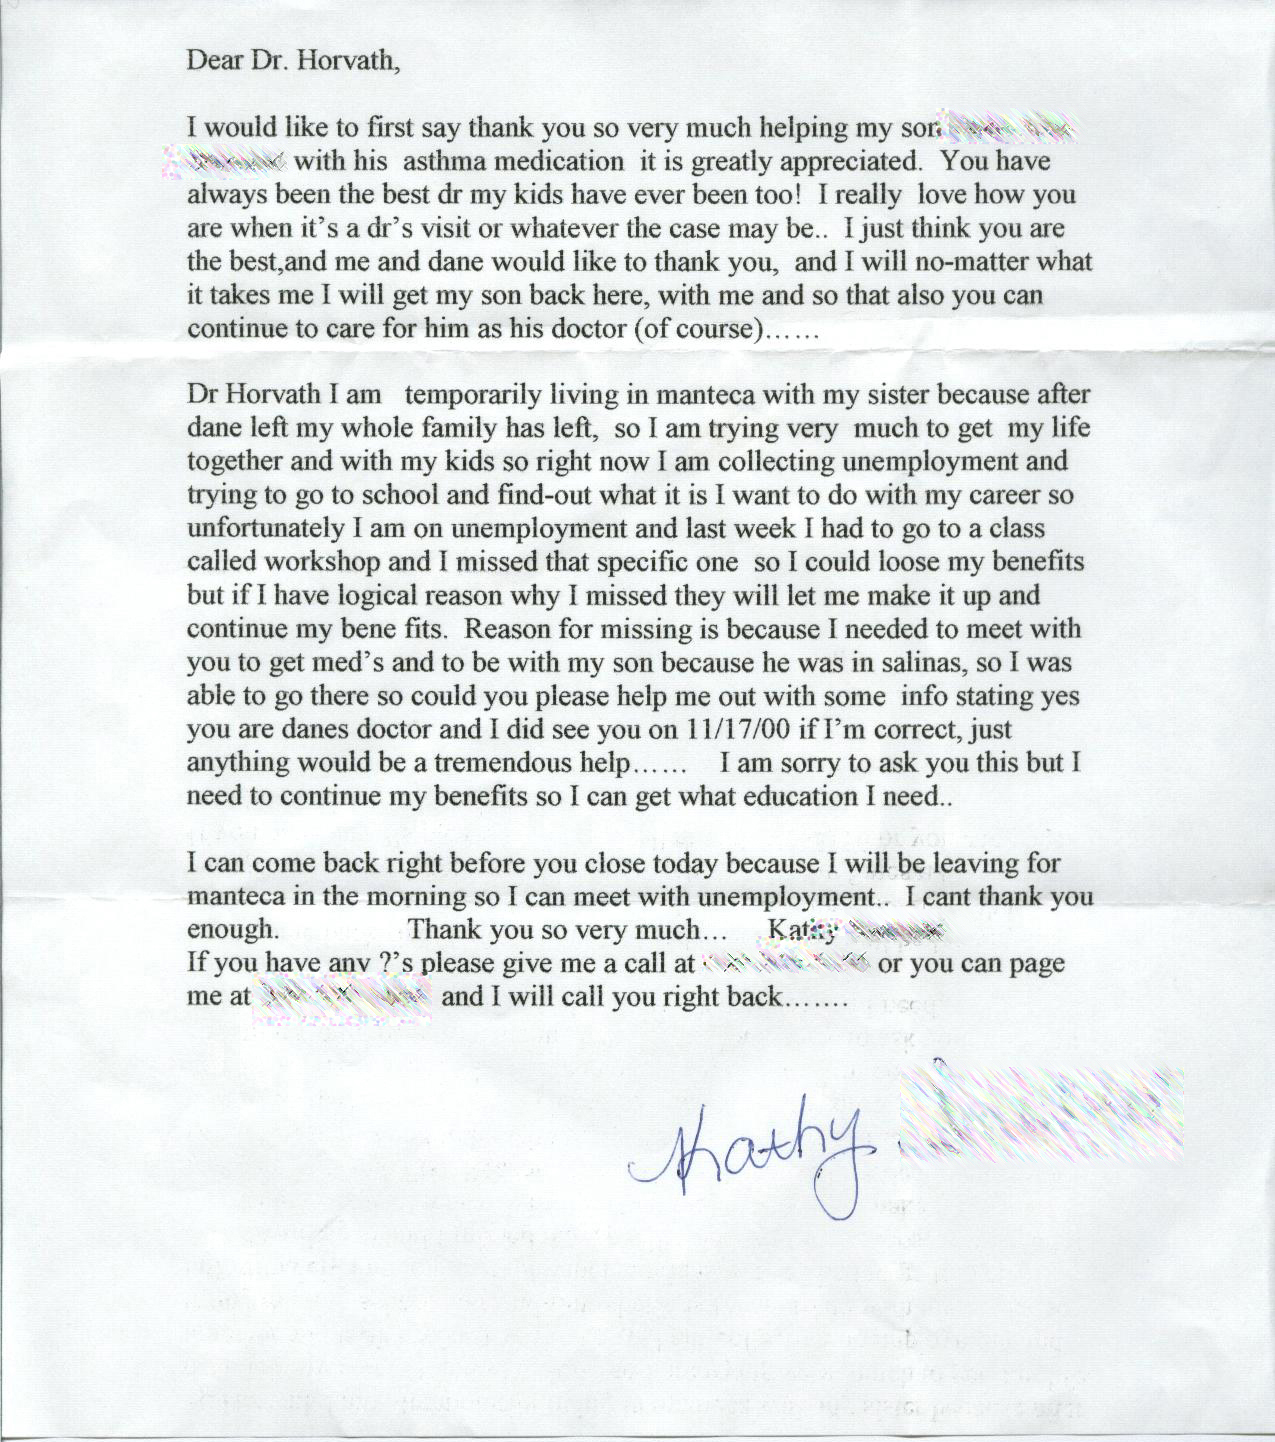 Dear Dr. Horvath,
I would like to first say thank you so very much helping my son
with his asthma medication it is greatly appreciated. You have
always been the best dr my kids have ever been too! I really love how you
are when it's a dr's visit or whatever the case may be.. I just think you are
the best,and me and dane would like to thank you, and I will no-matter what
it takes me I will get my son back here, with me and so that also you can
continue to care for him as his doctor (of course)......
Dr Horvath I am temporarily living in manteca with my sister because after
dane left my whole family has left, so I am trying very much to get my life
together and with my kids so right now I am collecting unemployment and
trying to go to school and find-out what it is I want to do with my career so
unfortunately I am on unemployment and last week I had to go to a class
called workshop and I missed that specific one so I could loose my benefits
but if I have logical reason why I missed they will let me make it up and
continue my bene fits. Reason for missing is because I needed to meet with
you to get med's and to be with my son because he was in salinas, so I was
able to go there so could you please help me out with some info stating yes
you are danes doctor and I did see you on 11/17/00 if I'm correct, just
anything would be a tremendous help...... I am sorry to ask you this but I
need to continue my benefits so I can get what education I need..
I can come back right before you close today because I will be leaving for
manteca in the morning so I can meet with unemployment.. I cant thank you
enough. Thank you so very much... Kathy
If you have any ?'s please give me a call at or you can page
me at and I will call you right back.......
Kathy